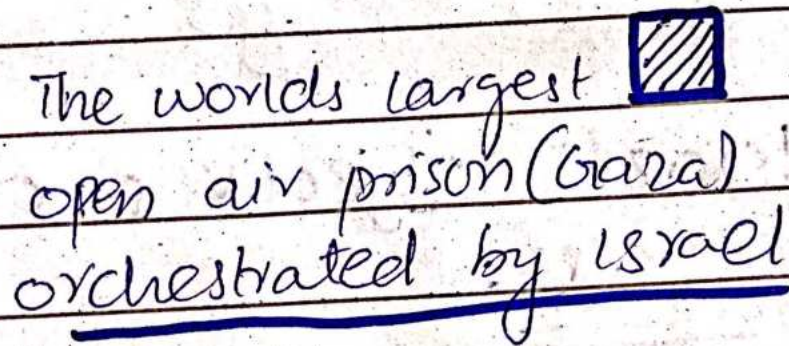 The worlds largest
open air prison (Gaza)
orchestrated by israel